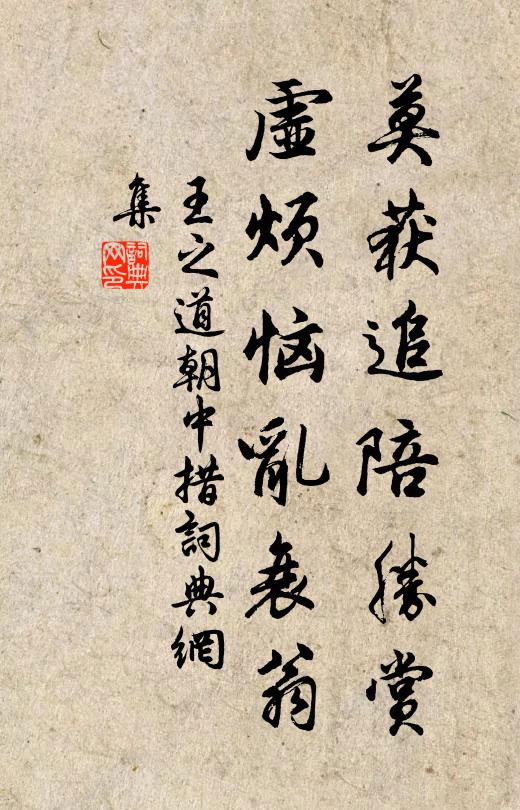 莫获追陪勝赏
虚烦恼亂衰翁
王之道朝中措詞典網
集
詞典
网印